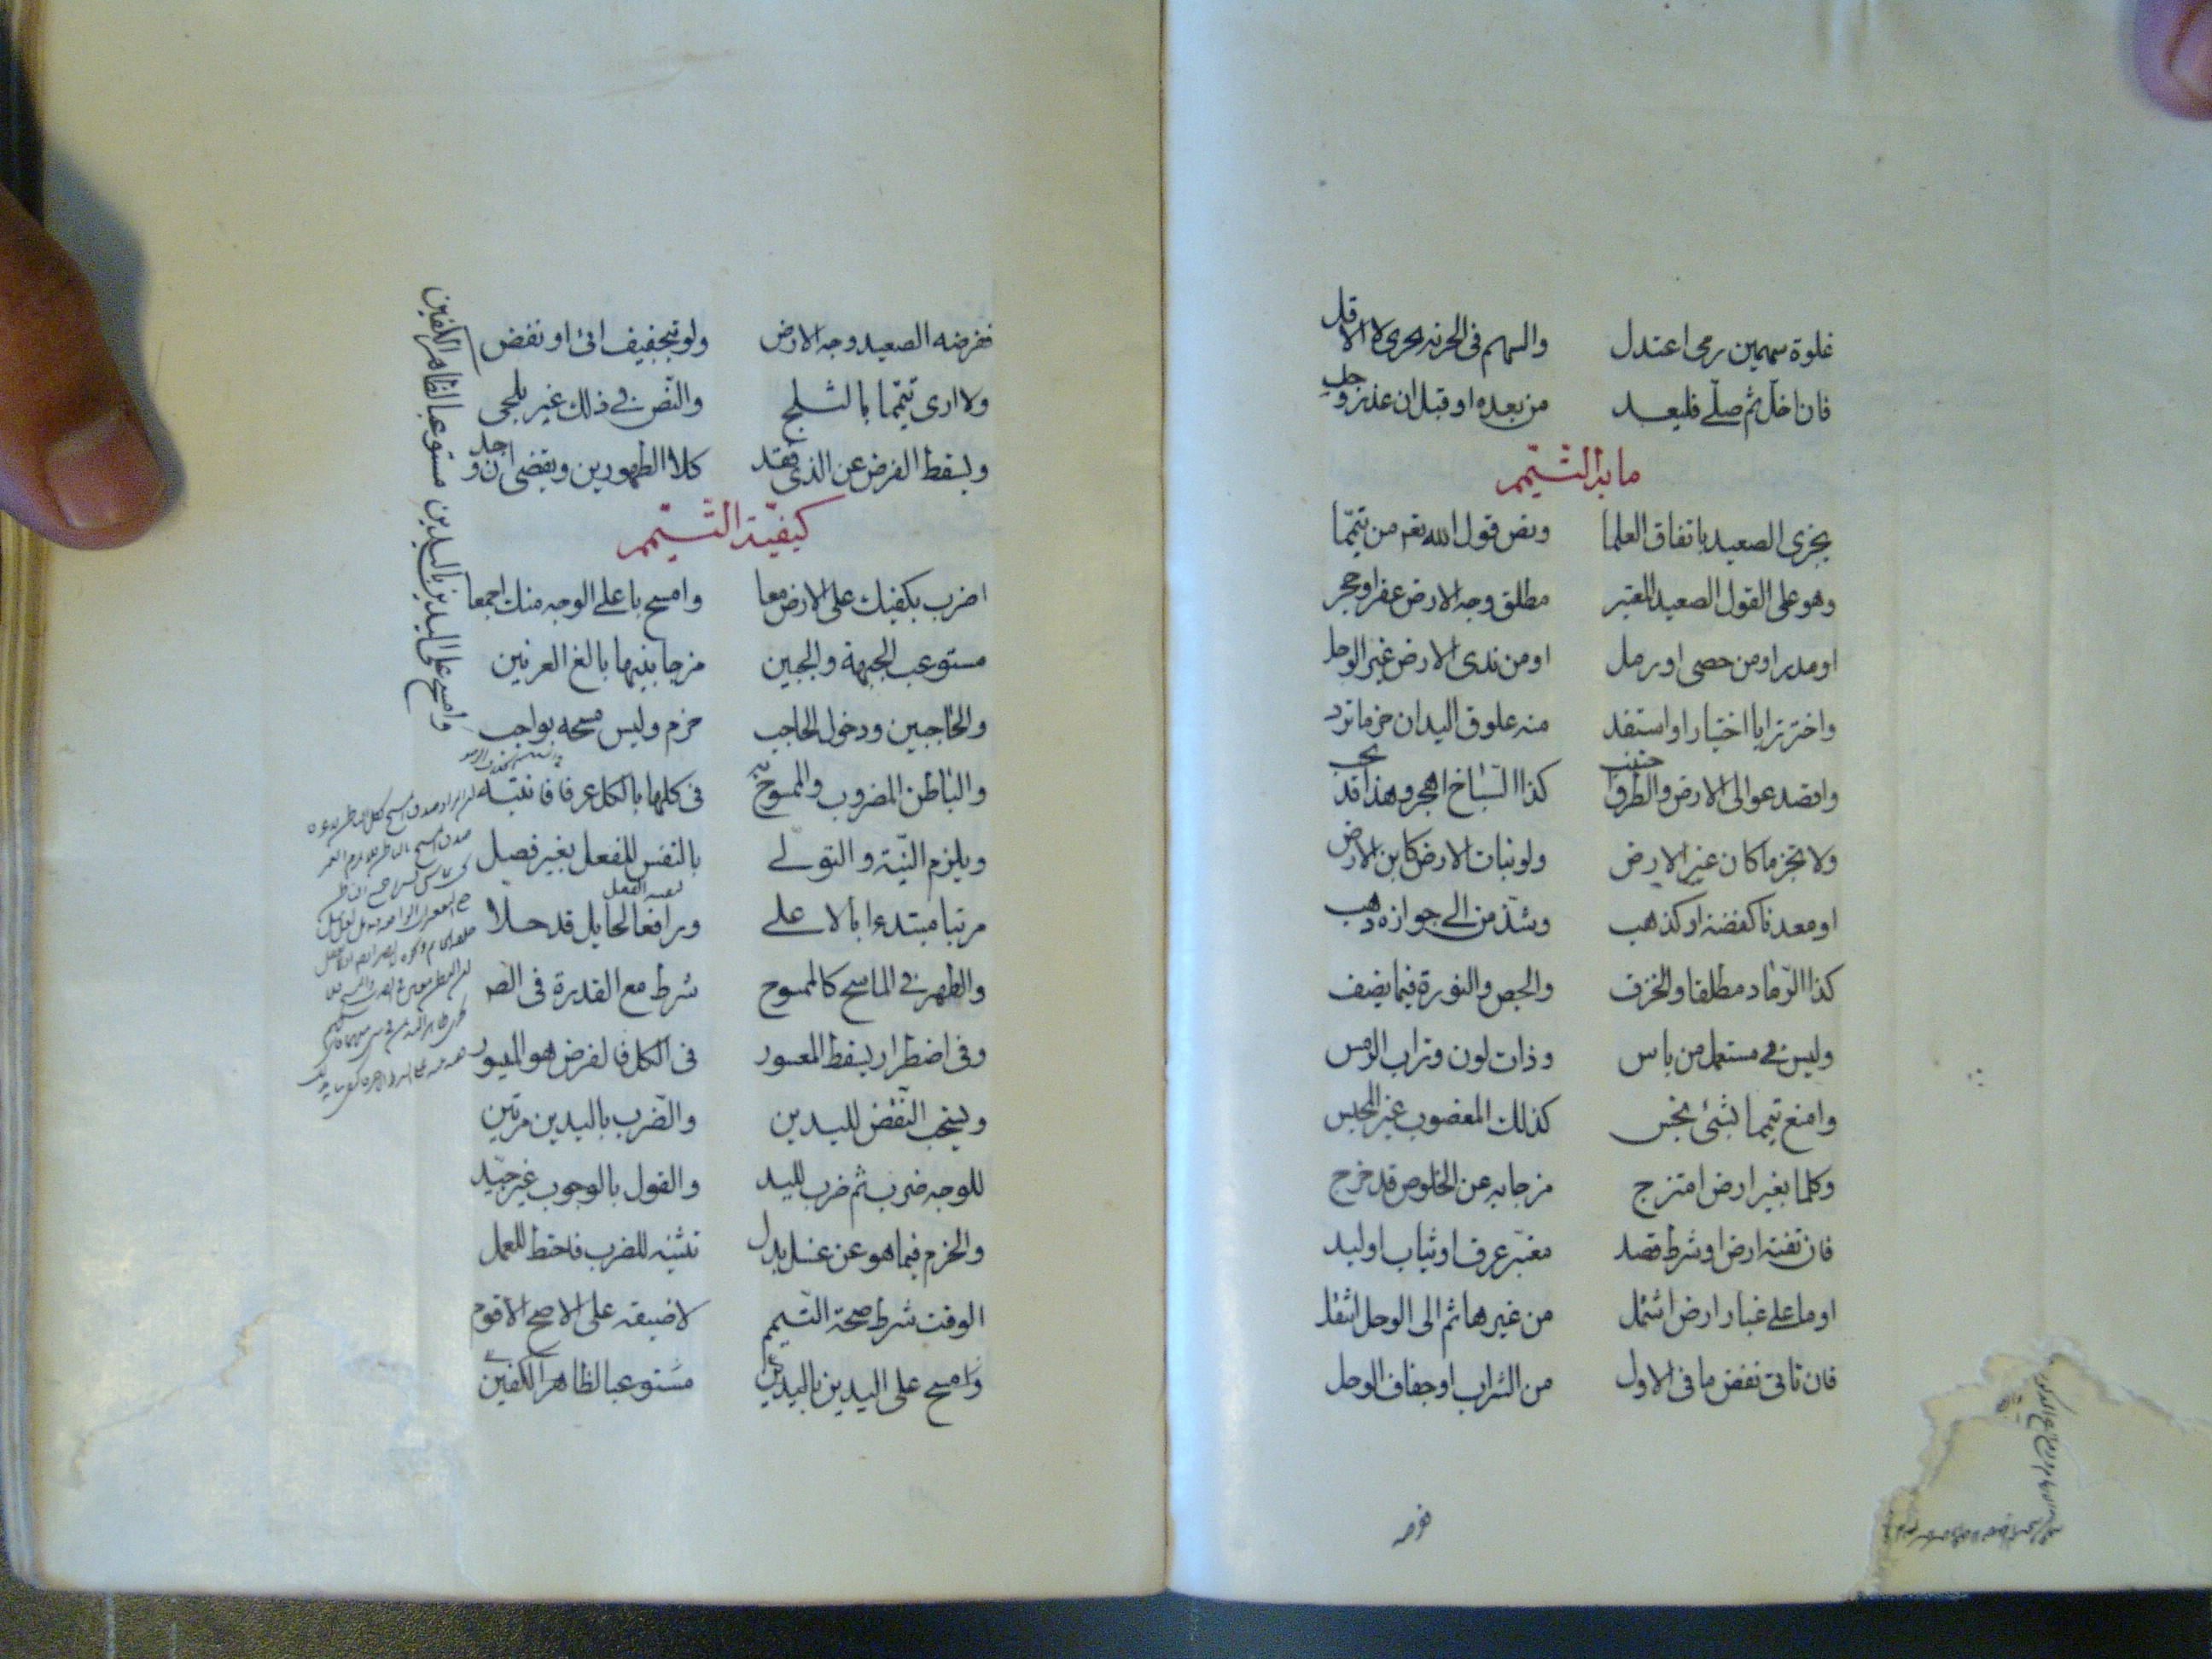 غلوة سهمين رمى اعتدل والسهم فى الحزنة يجرى لا الاقل
فان اخل ثم صلى فليعد من بعده او قبل ان عذر وجب
ما به التيمم
يجزى الصعيد باتفاق العلما ونص قول الله تعم من تيمما
وهو على القول الصعيد المعتبر مطلق وجه الارض عفرا وحجر
او مدر او من حصى او رمل او من ندى الارض غير الوحل
واختر ترابا اختيارا واستفد منه علوق اليدان حزما ترد
واقصد عوالى الارض والطرق كذا السباخ اهجر وهذا قد
ولا تجز ما كان غير الارض ولو نبات الارض كابن الارض
او معدنا كفضة او كذهب وشذ من الى جوازه ذهب
كذا الرماد مطلقا والخزف والجص والنورة فيما يضف
وليس فى مستعمل من باس وذات لون وتراب الرمس
وامنع تيمما بشئ نجس كذلك المغصوب غير المحبس
وكلما بغير ارض امتزج مزجا به عن الخلوص قد خرج
فان تفته ارض او شرط قصد مغبر عرف او ثياب او لبد
او ما على غبار ارض اشتمل من غيرها ثم الى الوحل انتقل
فان تاتى نفض ما فى الاول من التراب او جفاف الوحل
ففرضه
ففرضه الصعيد وجه الارض ولو بتجفيف اتى او نفض
ولا ارى تيمما بالثلج والنص فى ذلك غير ملجى
ويسقط الفرض عن الذى فقد كلا الطهورين ويقضى ان وجد
كيفية التيمم
اضرب بكفيك على الارض معا وامسح باعلى الوجه منك اجمعا
مستوعب الجبهة والجبين من جانبيها بالغ العرنين
والحاجبين ودخول الحاجب حزم وليس مسحه بواجب
والباطن المضروب والممسوح به فى كلها بالكل عرفا فانتبه
ويلزم النية والتولى بالنفس للفعل بغير فصل
مرتبا مبتدءا بالاعلى ورافعا لحايل قد حلا
والطهر فى الماسح كالممسوح شرط مع القدرة فى
وفى اضطرار يسقط المعسور فى الكل فالفرض هو الميسور
ويستحب النفض لليدين والضرب باليدين مرتين
للوجه ضرب ثم ضرب لليد والقول بالوجوب غير جيد
والحزم فيما هو عن غسل بدل تثنية للضرب فاحتط للعمل
الوقت شرط صحة التيمم لا ضيقه على الاصح الاقوم
وامسح على اليدين باليدين مستوعبا لظاهر الكفين
وامسح على اليدين باليدين مستوعبا لظاهر الكفين